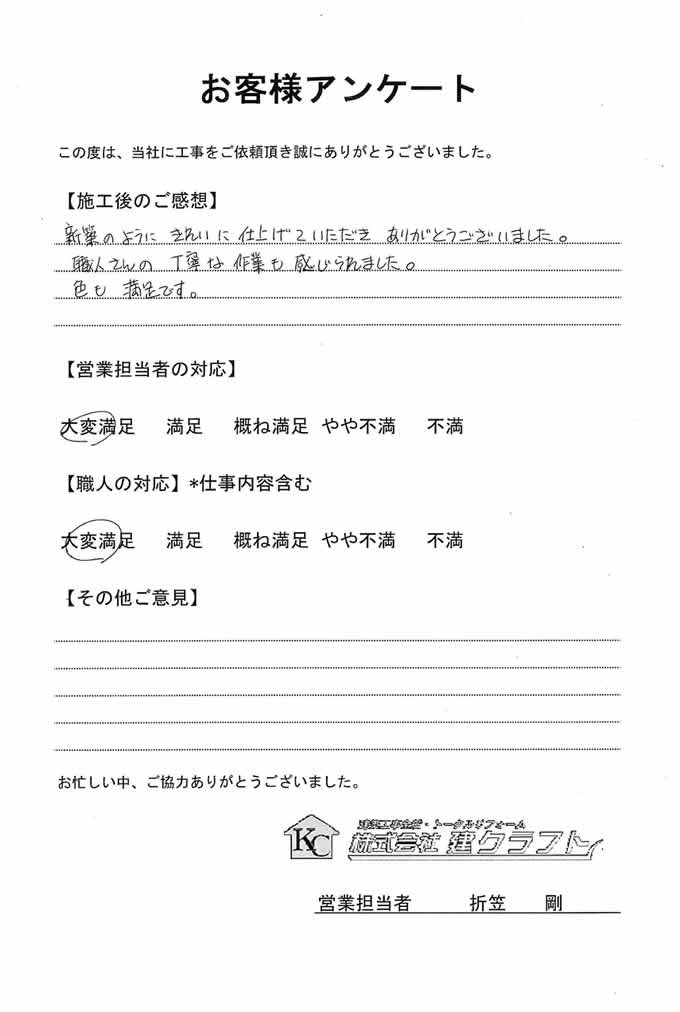 お客様アンケート
この度は、当社に工事をご依頼頂き誠にありがとうございました。
【施工後のご感想】
新築のように きれいに 仕上げていただき ありがとうございました。
職人さんの 丁寧な 作業も 感じられました。
色も 満足です。
【営業担当者の対応】
大変満足 満足 概ね満足 やや不満 不満
【職人の対応】*仕事内容含む
大変満足 満足 概ね満足 やや不満 不満
【その他ご意見】
お忙しい中、ご協力ありがとうございました。
KC
建築工事全般・トータルリフォーム
株式会社 建クラフト
営業担当者 折笠 剛